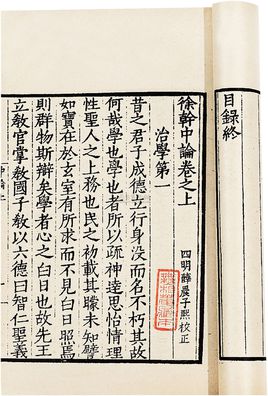 目錄終
徐幹中論卷之上
四明薛晨子熙校正
治學第一
昔之君子成德立行身没而名不朽其故
何哉學也學也者所以疏神達思怡情理
性聖人之上務也民之初載其矇未知譬
如寶在於玄室有所求而不見白日照焉
則群物斯辯矣學者心之白日也故先王
立教官掌教國子教以六德曰智仁聖義